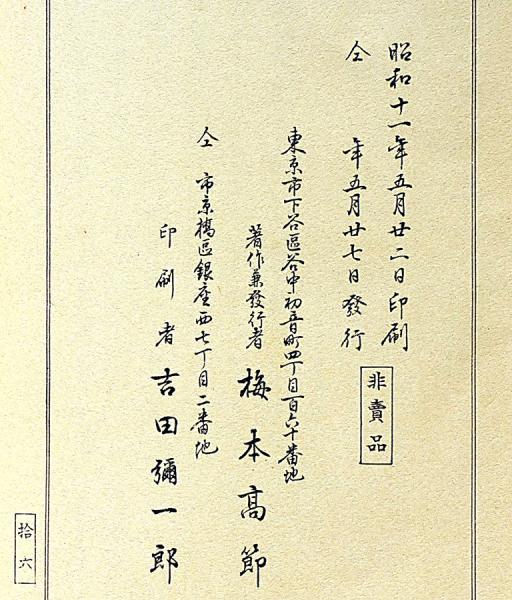 昭和十一年五月廿二日印刷
仝 年五月廿七日發行
非賣品
東京市下谷區谷中初音町四丁目百六十番地
著作兼發行者 梅本高節
仝 市京橋區銀座西七丁目二番地
印刷者 吉田彌一郎
拾六